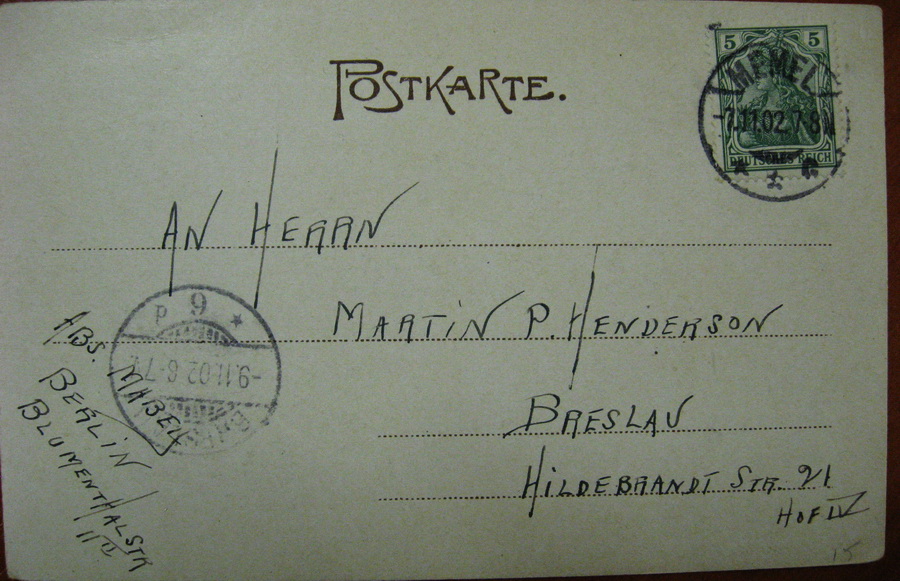 POSTKARTE.
5 5
MEMEL
-7.11.02.7-8N
DEUTSCHES REICH
AN HERRN
MARTIN P. HENDERSON
BRESLAU
HILDEBRANDT STR. 21
HOF IV
9
-9.11.02.6-7
ABS. MABEL
BERLIN
BLUMENTHALSTR
15